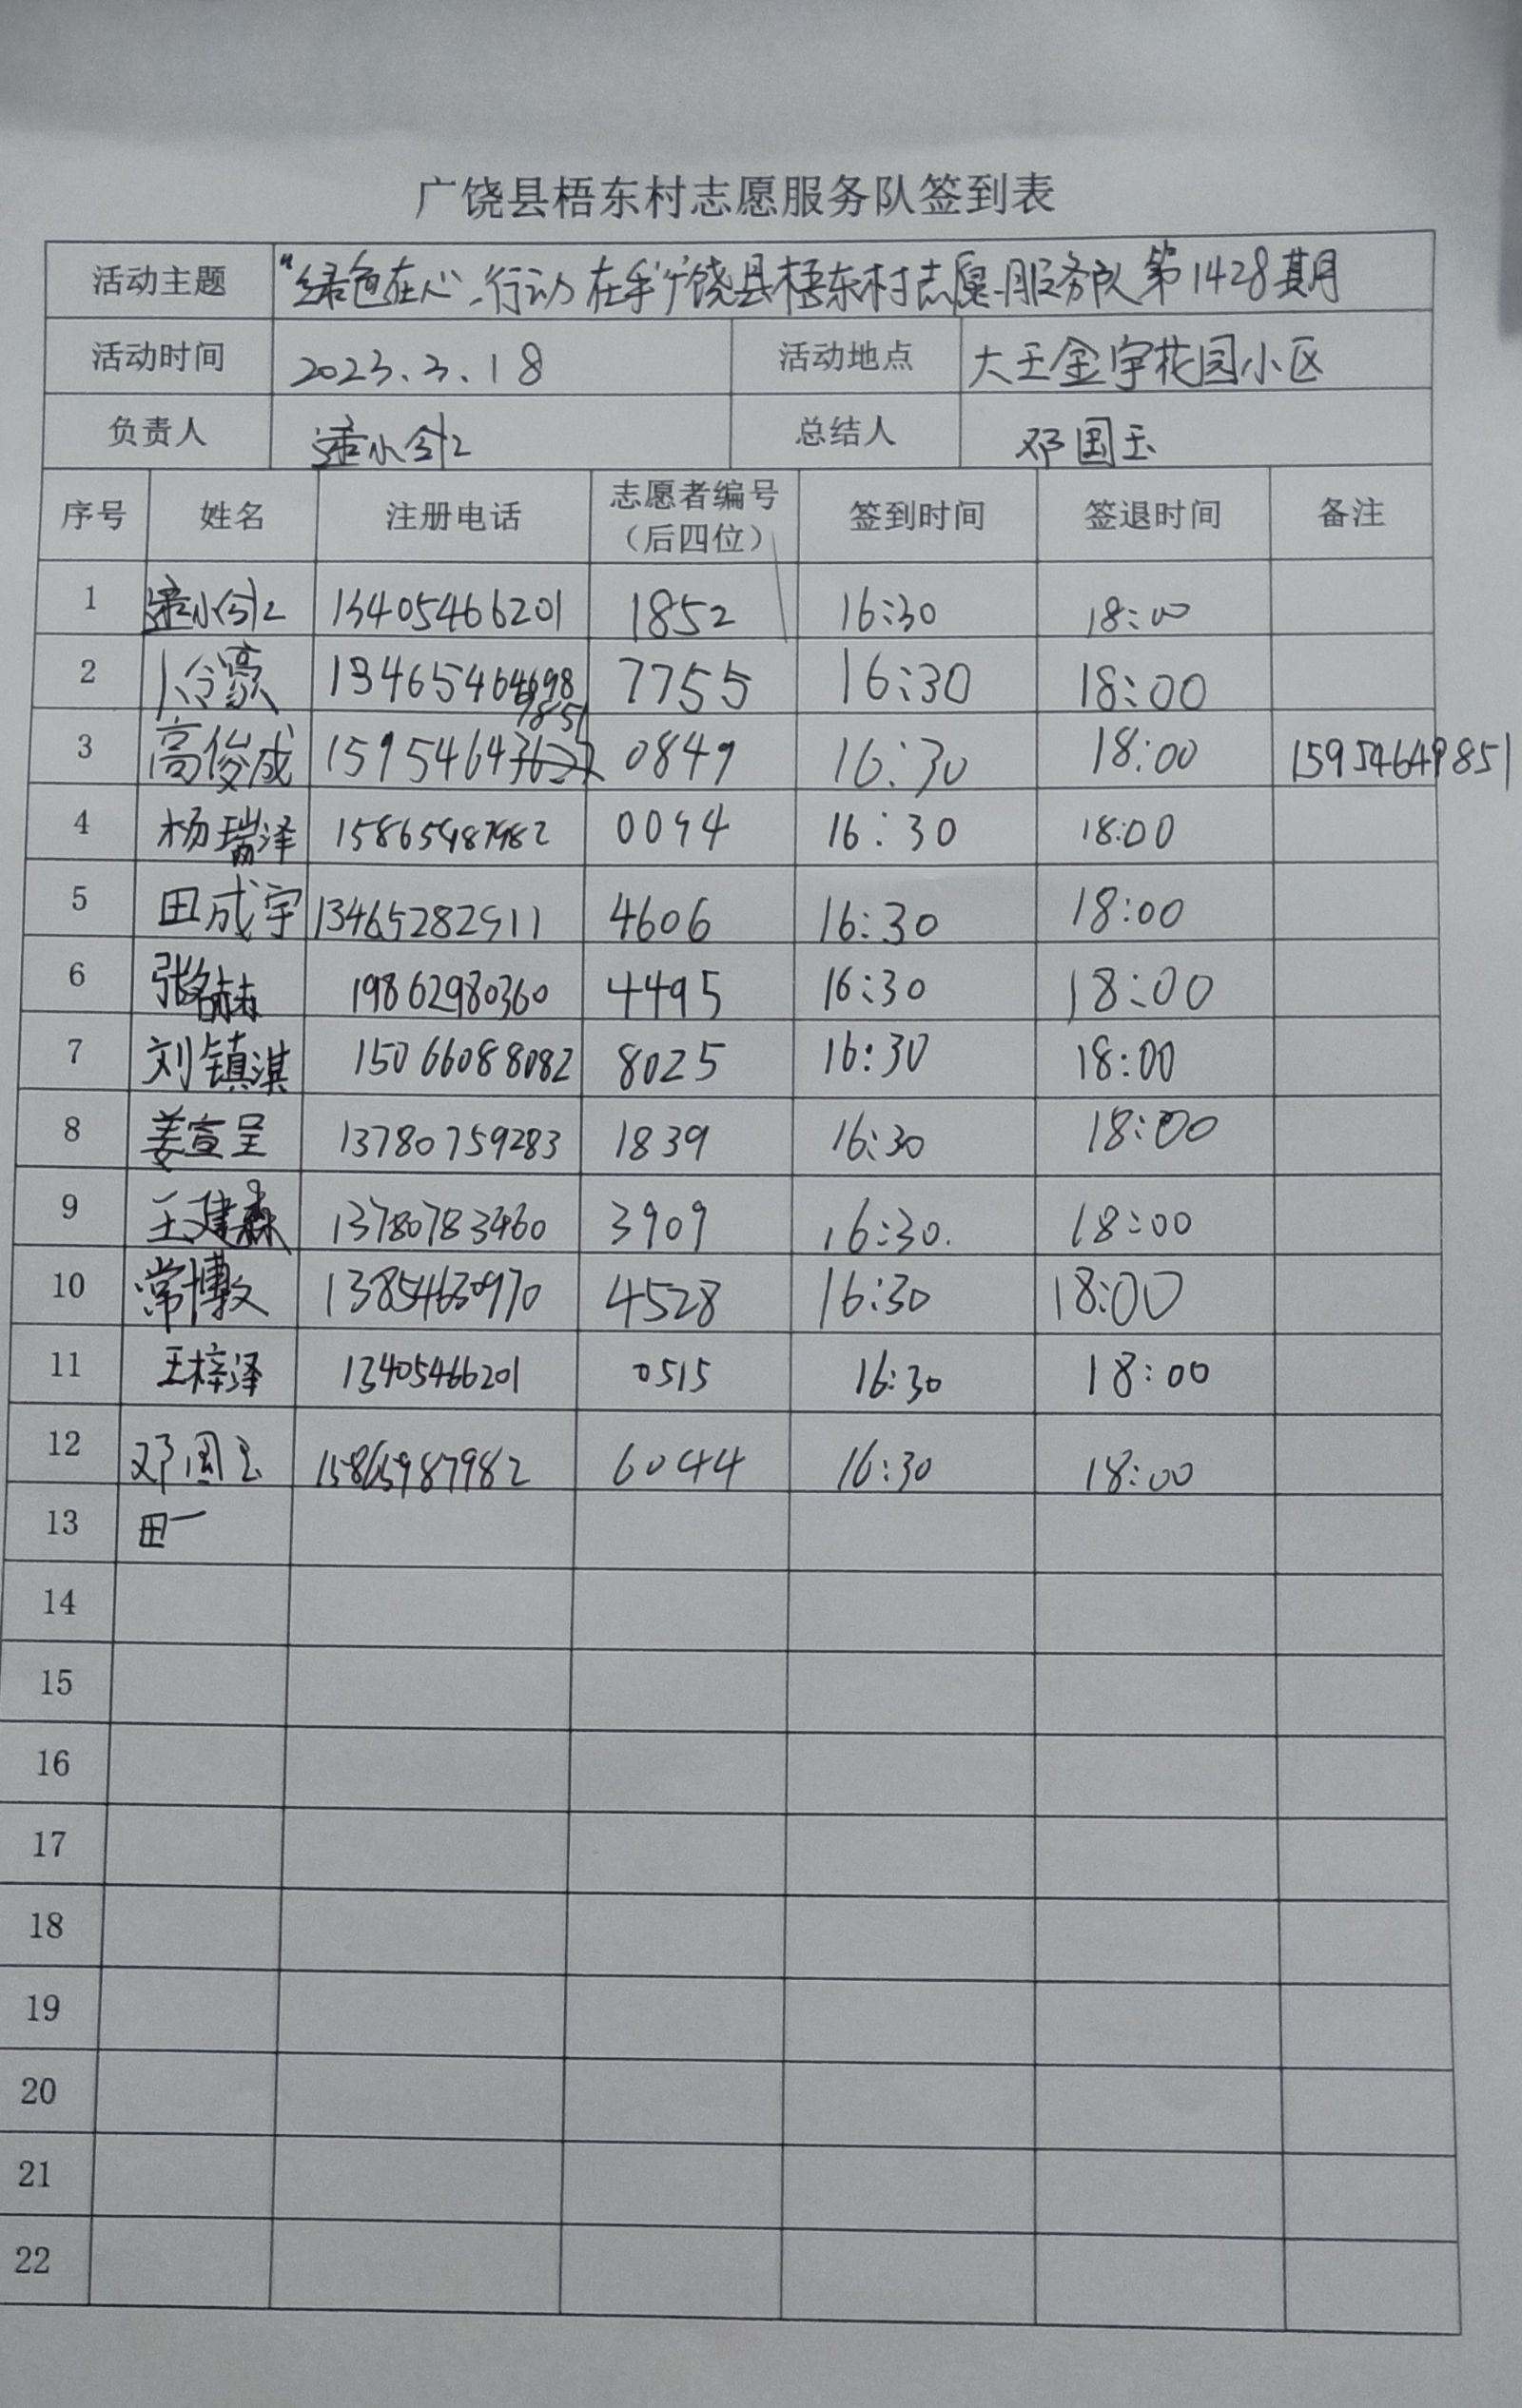 广饶县梧东村志愿服务队签到表
活动主题 "绿色在心,行动在手"广饶县梧东村志愿服务队第1428期
活动时间 2023.3.18 活动地点 大王金宇花园小区
负责人 总结人 邓国玉
序号 姓名 注册电话 志愿者编号（后四位） 签到时间 签退时间 备注
1 13405466201 1852 16:30 18:00
2 卜令豪 7755 16:30 18:00
3 高俊成 1595464 9851 0849 16:30 18:00 15954649851
4 杨瑞泽 15865987982 0094 16:30 18:00
5 田成宇 13465282911 4606 16:30 18:00
6 张名赫 19862980360 4495 16:30 18:00
7 刘镇淇 15066088082 8025 16:30 18:00
8 姜宣呈 13780759283 1839 16:30 18:00
9 王建森 13780783460 3909 16:30. 18:00
10 常博文 13854630970 4528 16:30 18:00
11 王梓泽 13405466201 0515 16:30 18:00
12 邓国玉 15865987982 6044 16:30 18:00
13 田一
14
15
16
17
18
19
20
21
22